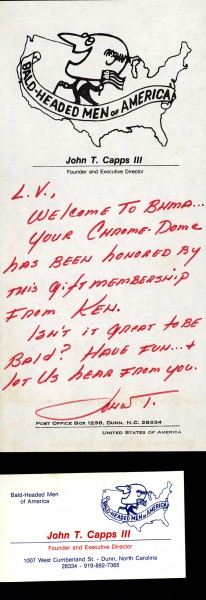 BALD-HEADED MEN OF AMERICA
John T. Capps III
Founder and Executive Director
L.V.,
Welcome To BHMA...
Your Chrome-Dome
has been honored by
this gift membership
From Ken.
Isn't it great to be
Bald? Have fun...+
lot us hear from you.
John T.
POST OFFICE BOX 1238, DUNN, N.C. 28334
UNITED STATES OF AMERICA
Bald-Headed Men
of America
BALD-HEADED MEN OF AMERICA
John T. Capps III
Founder and Executive Director
1007 West Cumberland St. - Dunn, North Carolina
28334 - 919-892-7365